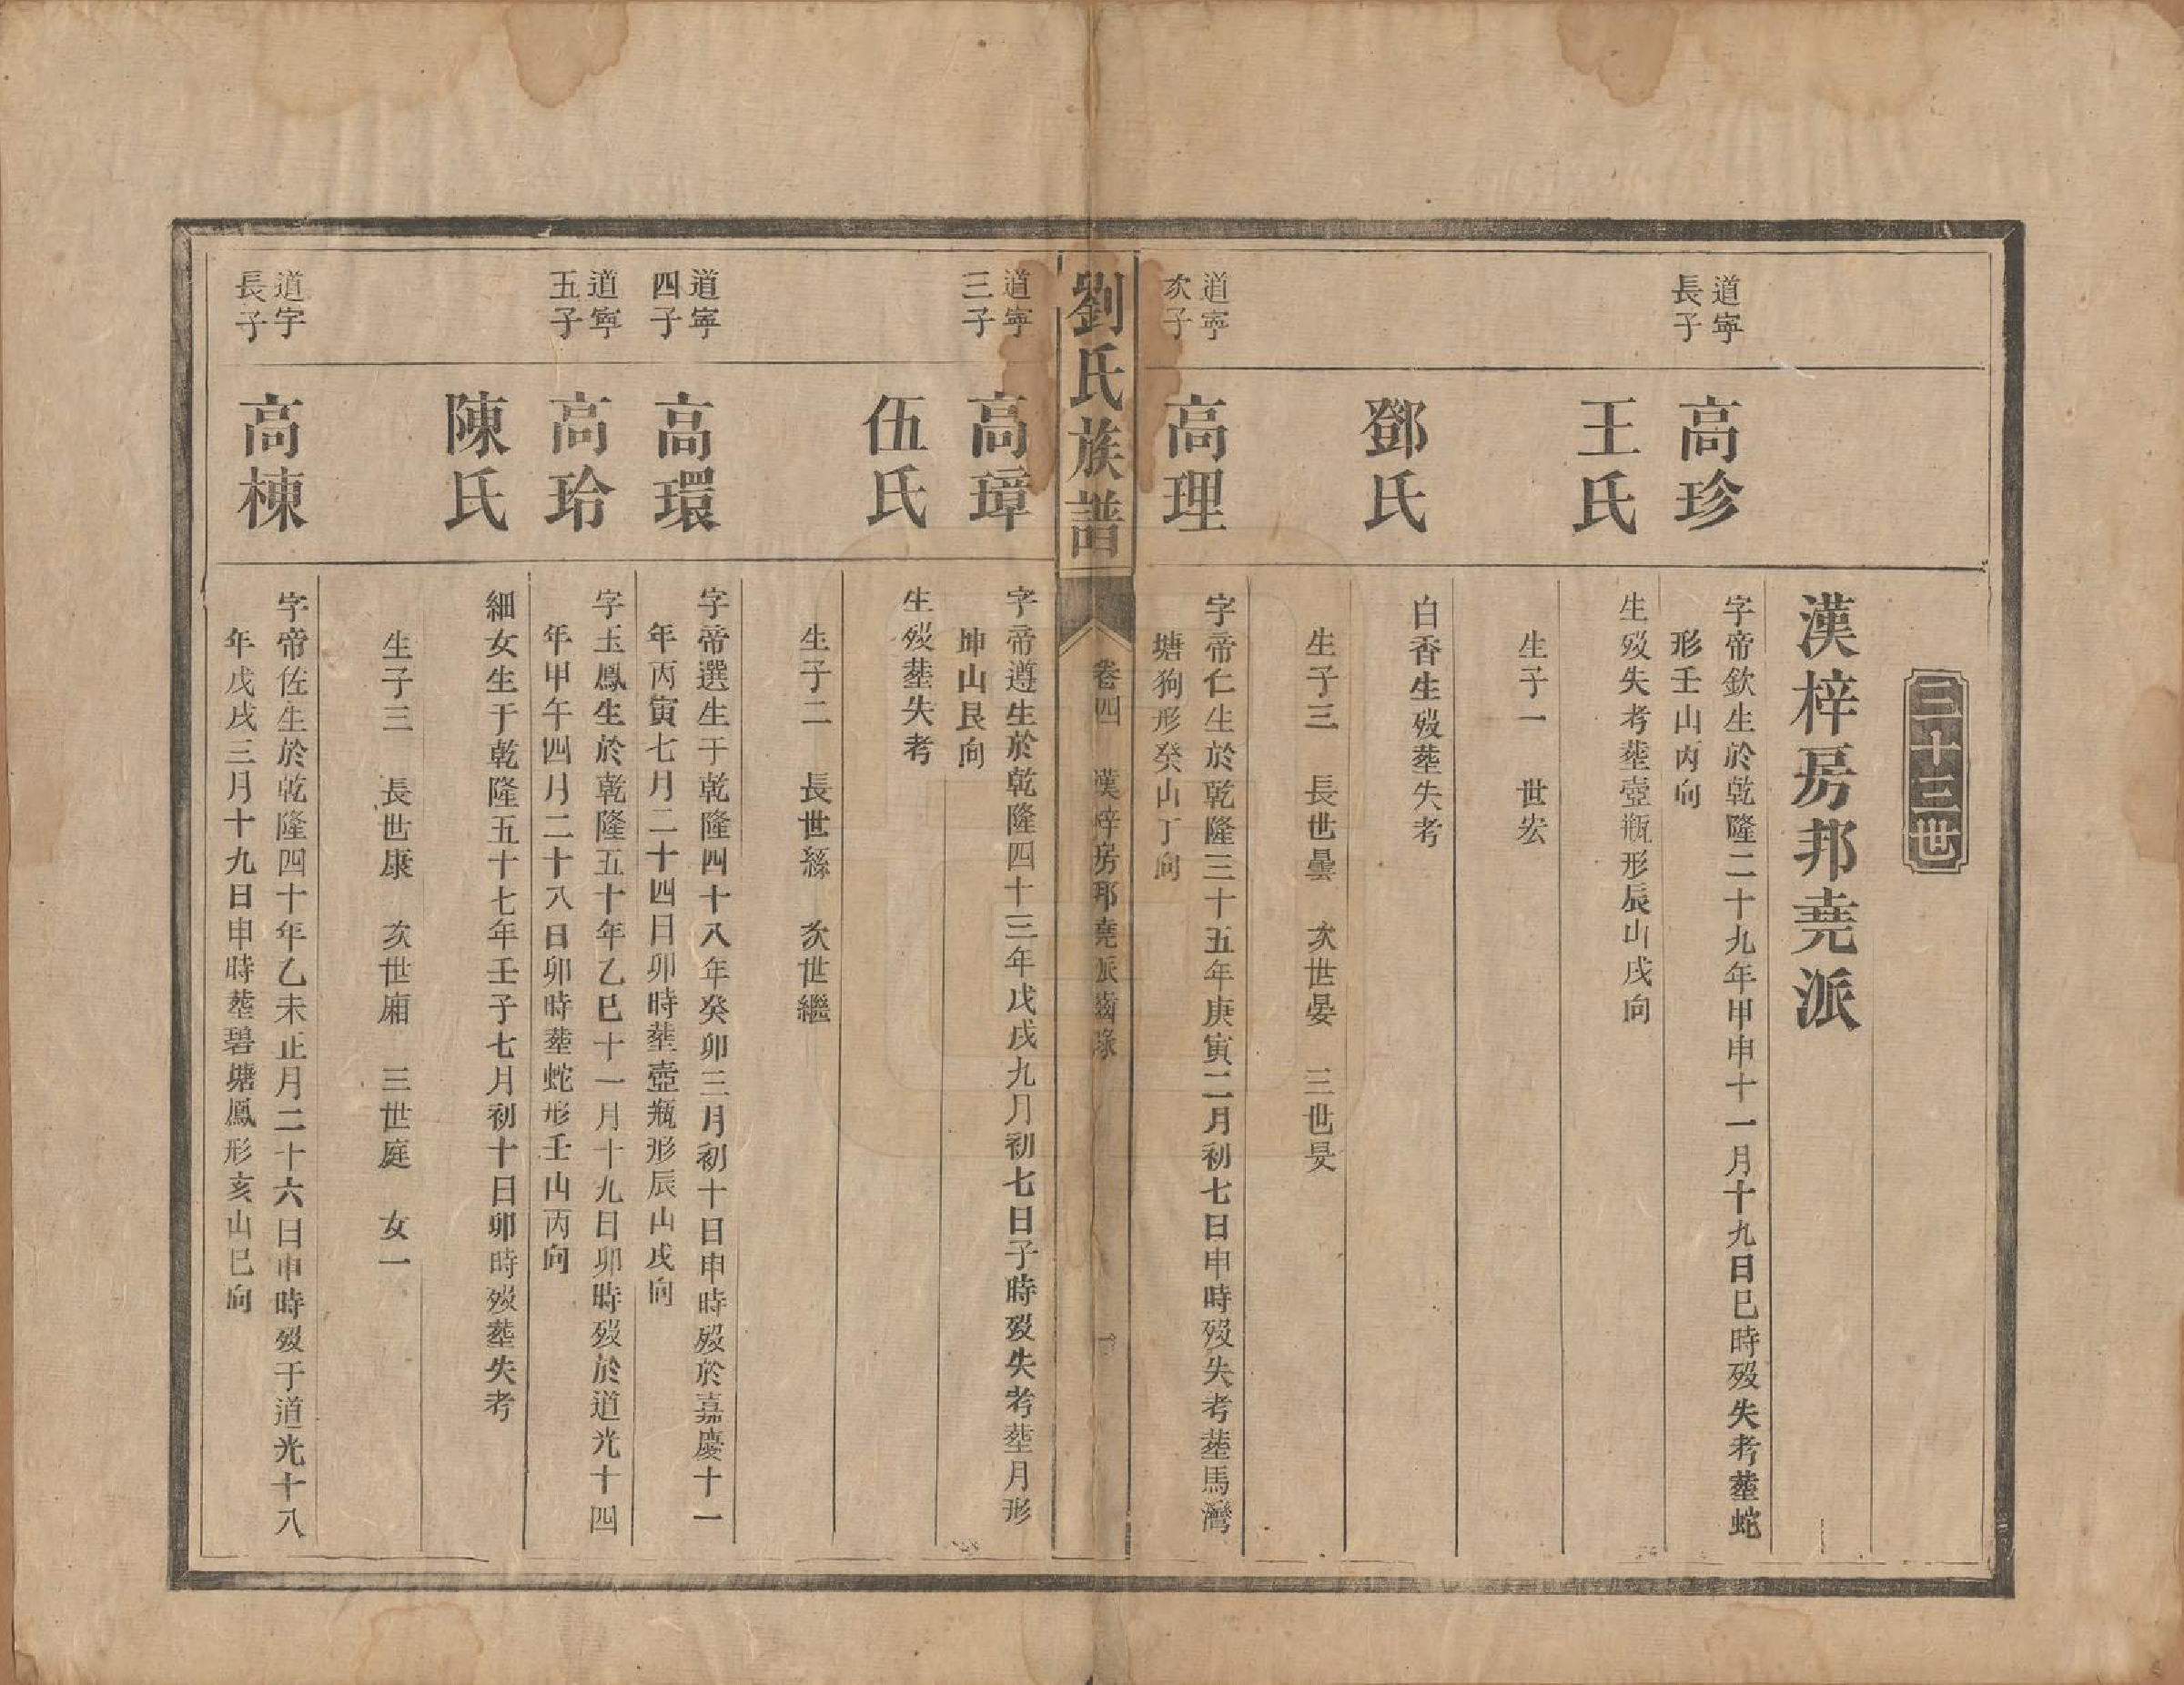 二十三世
漢梓房邦堯派
道寧
長子
高珍
字帝欽生於乾隆二十九年甲申十一月十九日巳時歿失考塟蛇
形壬山丙向
王氏
生歿失考塟壼瓶形辰山戌向
生子一　世宏
鄧氏
白香生歿塟失考
生子三　長世曇　次世晏　三世旻
道寧
次子
高理
字帝仁生於乾隆三十五年庚寅二月初七日申時歿失考塟馬灣
塘狗形癸山丁向
劉氏族譜
卷四　漢梓房邦堯派齒錄
道寧
三子
高璋
字帝遵生於乾隆四十三年戊戌九月初七日子時歿失考塟月形
坤山艮向
伍氏
生歿塟失考
生子二　長世繇　次世繼
道寧
四子
高環
字帝選生于乾隆四十八年癸卯三月初十日申時歿於嘉慶十一
年丙寅七月二十四日卯時塟壺瓶形辰山戌向
道寧
五子
高玲
字玉鳳生於乾隆五十年乙巳十一月十九日卯時歿於道光十四
年甲午四月二十八日卯時塟蛇形壬山丙向
陳氏
細女生于乾隆五十七年壬子七月初十日卯時歿塟失考
生子三　長世康　次世廂　三世庭　女一
道字
長子
高棟
字帝佐生於乾隆四十年乙未正月二十六日申時歿于道光十八
年戊戌三月十九日申時塟碧塘鳳形亥山巳向